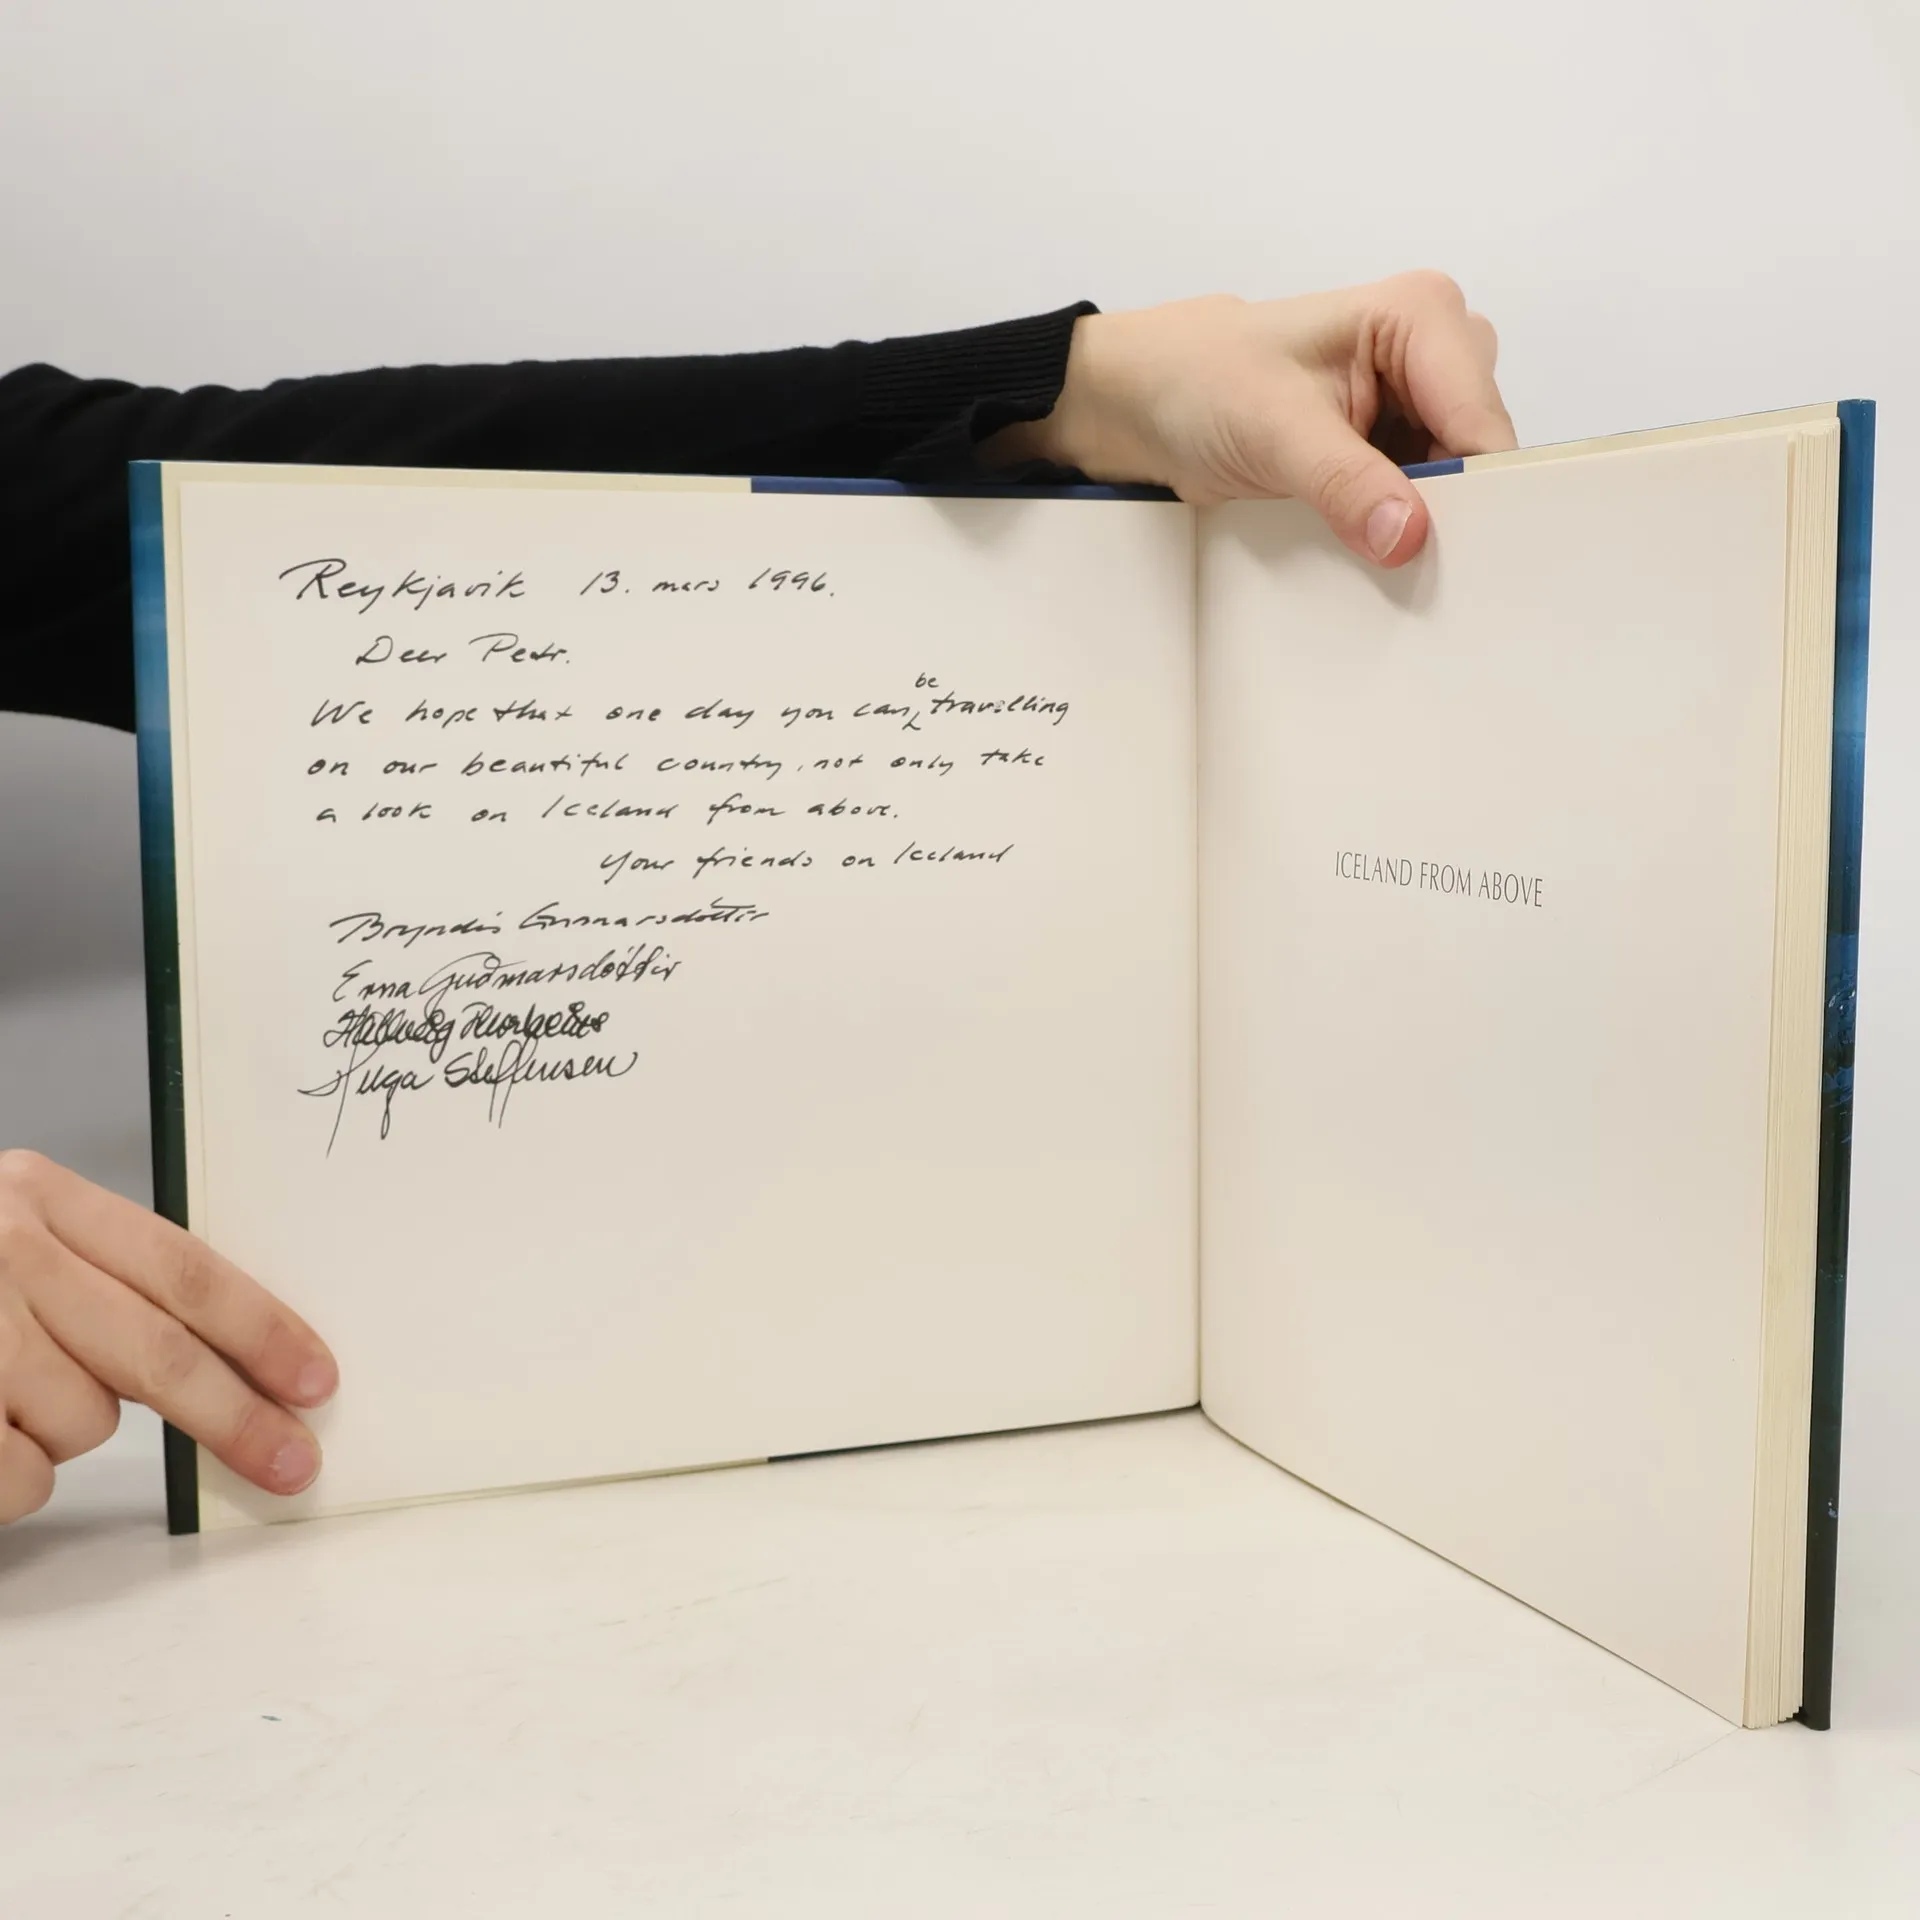 Reykjavik 13. mars 1996.
Deer Petr.
We hope that one day you can be travelling
on our beautiful country, not only take
a look on Iceland from above.
Your friends on Iceland
Bryndís Gunnarsdóttir
Erna Guðmarsdóttir
Hallveig Thorlacius
Helga Steffensen
ICELAND FROM ABOVE